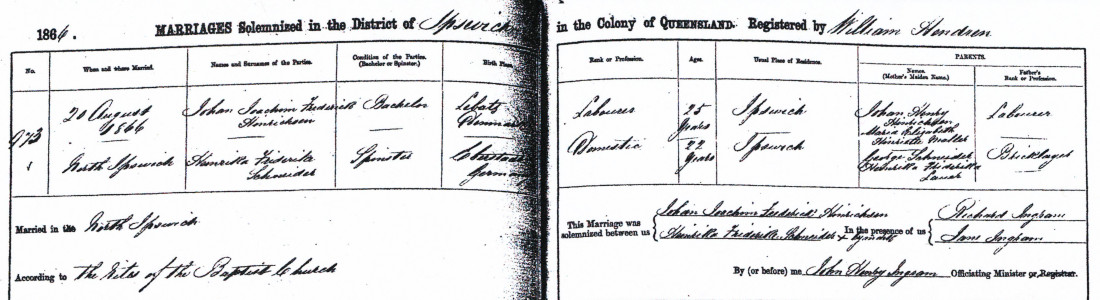 1866. MARRIAGES Solemnized in the District of Ipswich in the Colony of QUEENSLAND. Registered by William Hendren
No. When and where Married. Names and Surnames of the Parties. Condition of the Parties. (Bachelor or Spinster.) Birth Place. Rank or Profession. Ages. Usual Place of Residence. PARENTS.
Names. (Mother's Maiden Name.) Father's Rank or Profession.
973
20 August 1866
Johan Joachim Frederick Hinrichsen
Bachelor
Denmark
Labourer
25 Years
Ipswich
Johan Henry Hinrichsen
Maria Elizabeth Henriette
Labourer
North Ipswich
Heinrika Frederika Schneider
Spinster
Germany
Domestic
22 Years
Ipswich
George Schneider
Heinrika Friderika
Bricklayer
Married in the North Ipswich
According to the Rites of the Baptist Church
This Marriage was solemnized between us
Johan Joachim Frederick Hinrichsen
Heinrika Frederika Schneider x by mark
In the presence of us
Richard Ingram
Jane Ingram
By (or before) me John Henry Ingram Officiating Minister or Registrar.